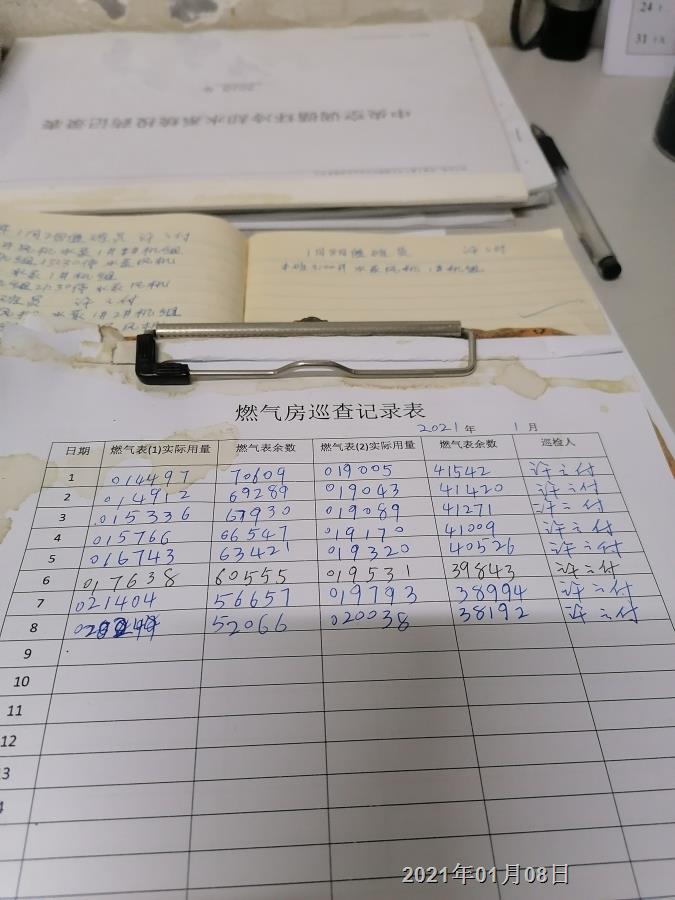 24
31
中央空调循环冷却水系统投药记录表
1月8日值班员 许之付
水泵 1#机组
许之付
燃气房巡查记录表
2021年 1月
日期 燃气表(1)实际用量 燃气表余数 燃气表(2)实际用量 燃气表余数 巡检人
1 014497 70609 019005 41542 许之付
2 014912 69289 019043 41420 许之付
3 015336 67930 019089 41271 许之付
4 015766 66547 019170 41009 许之付
5 016743 63421 019320 40526 许之付
6 017638 60555 019531 39843 许之付
7 021404 56657 019793 38994 许之付
8 52066 020038 38192 许之付
9
10
11
12
3
4
2021年01月08日